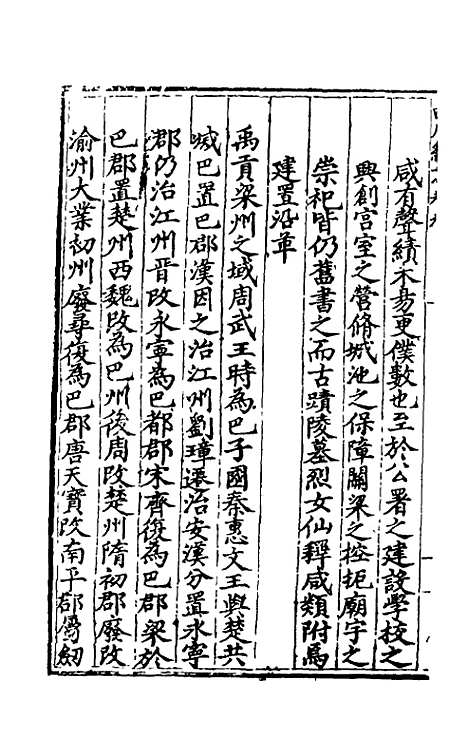 咸有聲績未易更僕數也至於公署之建設學校之
興創宫室之營脩城池之保障關梁之控扼廟宇之
崇祀皆仍舊書之而古蹟陵墓烈女仙釋咸類附焉
建置沿革
禹貢梁州之域周武王時為巴子國秦惠文王與楚共
滅巴置巴郡漢因之治江州劉璋遷治安漢分置永寧
郡仍治江州晉改永寧為巴都郡宋齊復為巴郡梁於
巴郡置楚州西魏改為巴州後周改楚州隋初郡廢改
渝州大業初州廢尋復為巴郡唐天寳改南平郡蜀劒